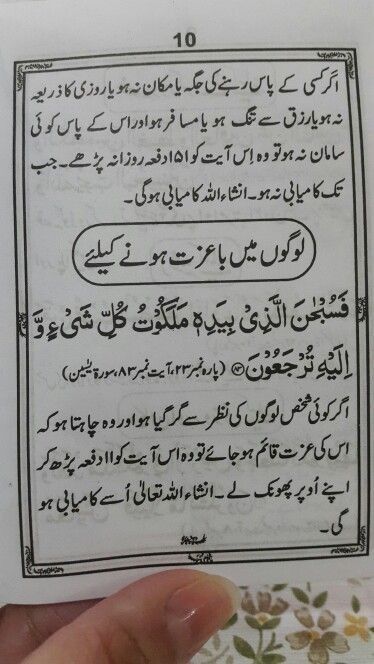 10
اگر کسی کے پاس رہنے کی جگہ یا مکان نہ ہو یا روزی کا ذریعہ
نہ ہو یا رزق سے تنگ ہو یا مسافر ہو اور اس کے پاس کوئی
سامان نہ ہو تو وہ اِس آیت کو ۱۵۱ دفعہ روزانہ پڑھے۔ جب
تک کامیابی نہ ہو۔ انشاء اللہ کامیابی ہوگی۔
لوگوں میں باعزت ہونے کیلئے
فَسُبْحٰنَ الَّذِیْ بِیَدِہٖ مَلَکُوْتُ کُلِّ شَیْءٍ وَّ
اِلَیْهِ تُرْجَعُوْنَ ﴿۸۳﴾ (پارہ نمبر ۲۳، آیت نمبر ۸۳، سورۃ یٰسین)
اگر کوئی شخص لوگوں کی نظر سے گر گیا ہو اور وہ چاہتا ہو کہ
اس کی عزت قائم ہو جائے تو وہ اس آیت کو ۱۱ دفعہ پڑھ کر
اپنے اُوپر پھونک لے۔ انشاء اللہ تعالیٰ اُسے کامیابی ہو
گی۔